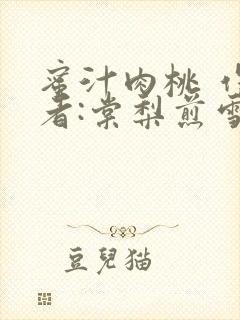 蜜汁肉桃 作
者:棠梨煎雪
豆兒猫